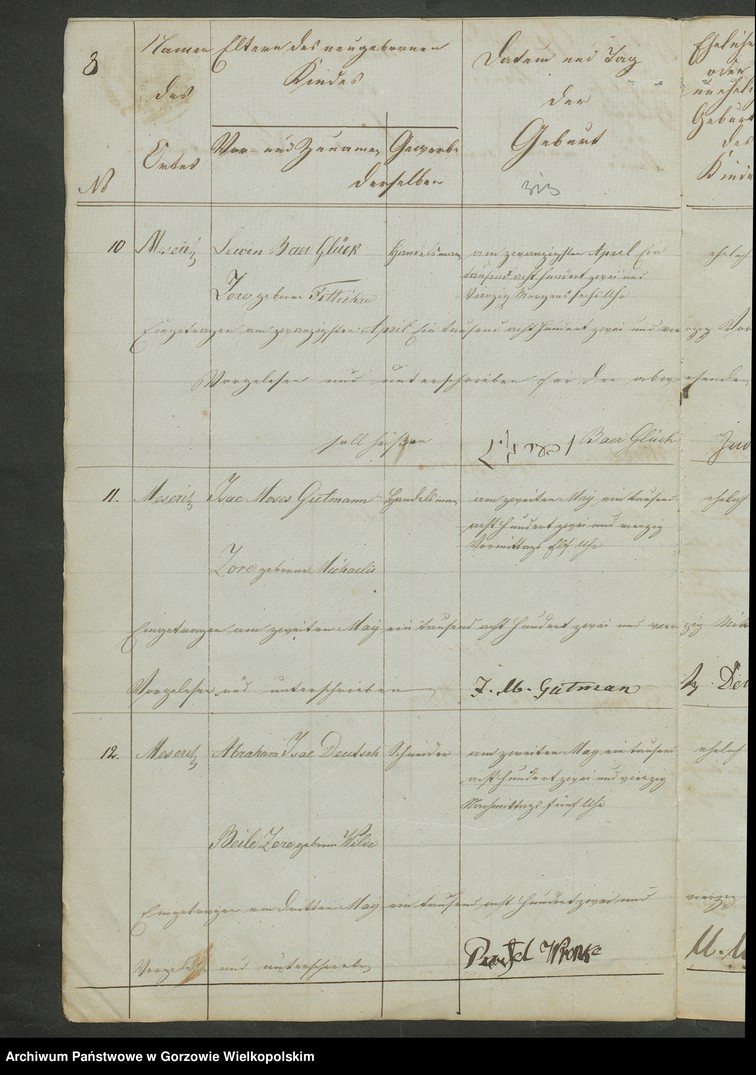 8
Namen
des
Ortes
Eltern des neugebornen
Kindes
Vor- und Zunamen
Gewerbe
derselben
Datum und Tag
der
Geburt
Eheliche
oder
unehel
Geburt
des
Kinde
No
10 Meseritz Lewin Baer Glück Handelsman am zwanzigsten April Ein ehelich
tausend acht hundert zwei und
Zore geborne vierzig Morgens sechs Uhr
Eingetragen am zwanzigsten April Ein tausend acht hundert zwei und vierzig Vor
Vorgelesen und unterschrieben für den abwesenden
soll heißen
Baer Glück
11. Meseritz Isac Moses Gutmann Handelsman am zweiten May ein tausend ehelich
acht hundert zwei und vierzig
Vormittags Elf Uhr
Zore geborne Michaelis
Eingetragen am zweiten May ein tausend acht hundert zwei und vierzig
Vorgelesen und unterschrieben J. M. Gutman
12. Meseritz Abraham Isac Deutsch Schneider am zweiten May ein tausend ehelich
acht hundert zwei und vierzig
Nachmittags fünf Uhr
Beile Zore geborne
Eingetragen am dritten May ein tausend acht hundert zwei und vierzig
Vorgelesen und unterschrieben Wronke
Archiwum Państwowe w Gorzowie Wielkopolskim